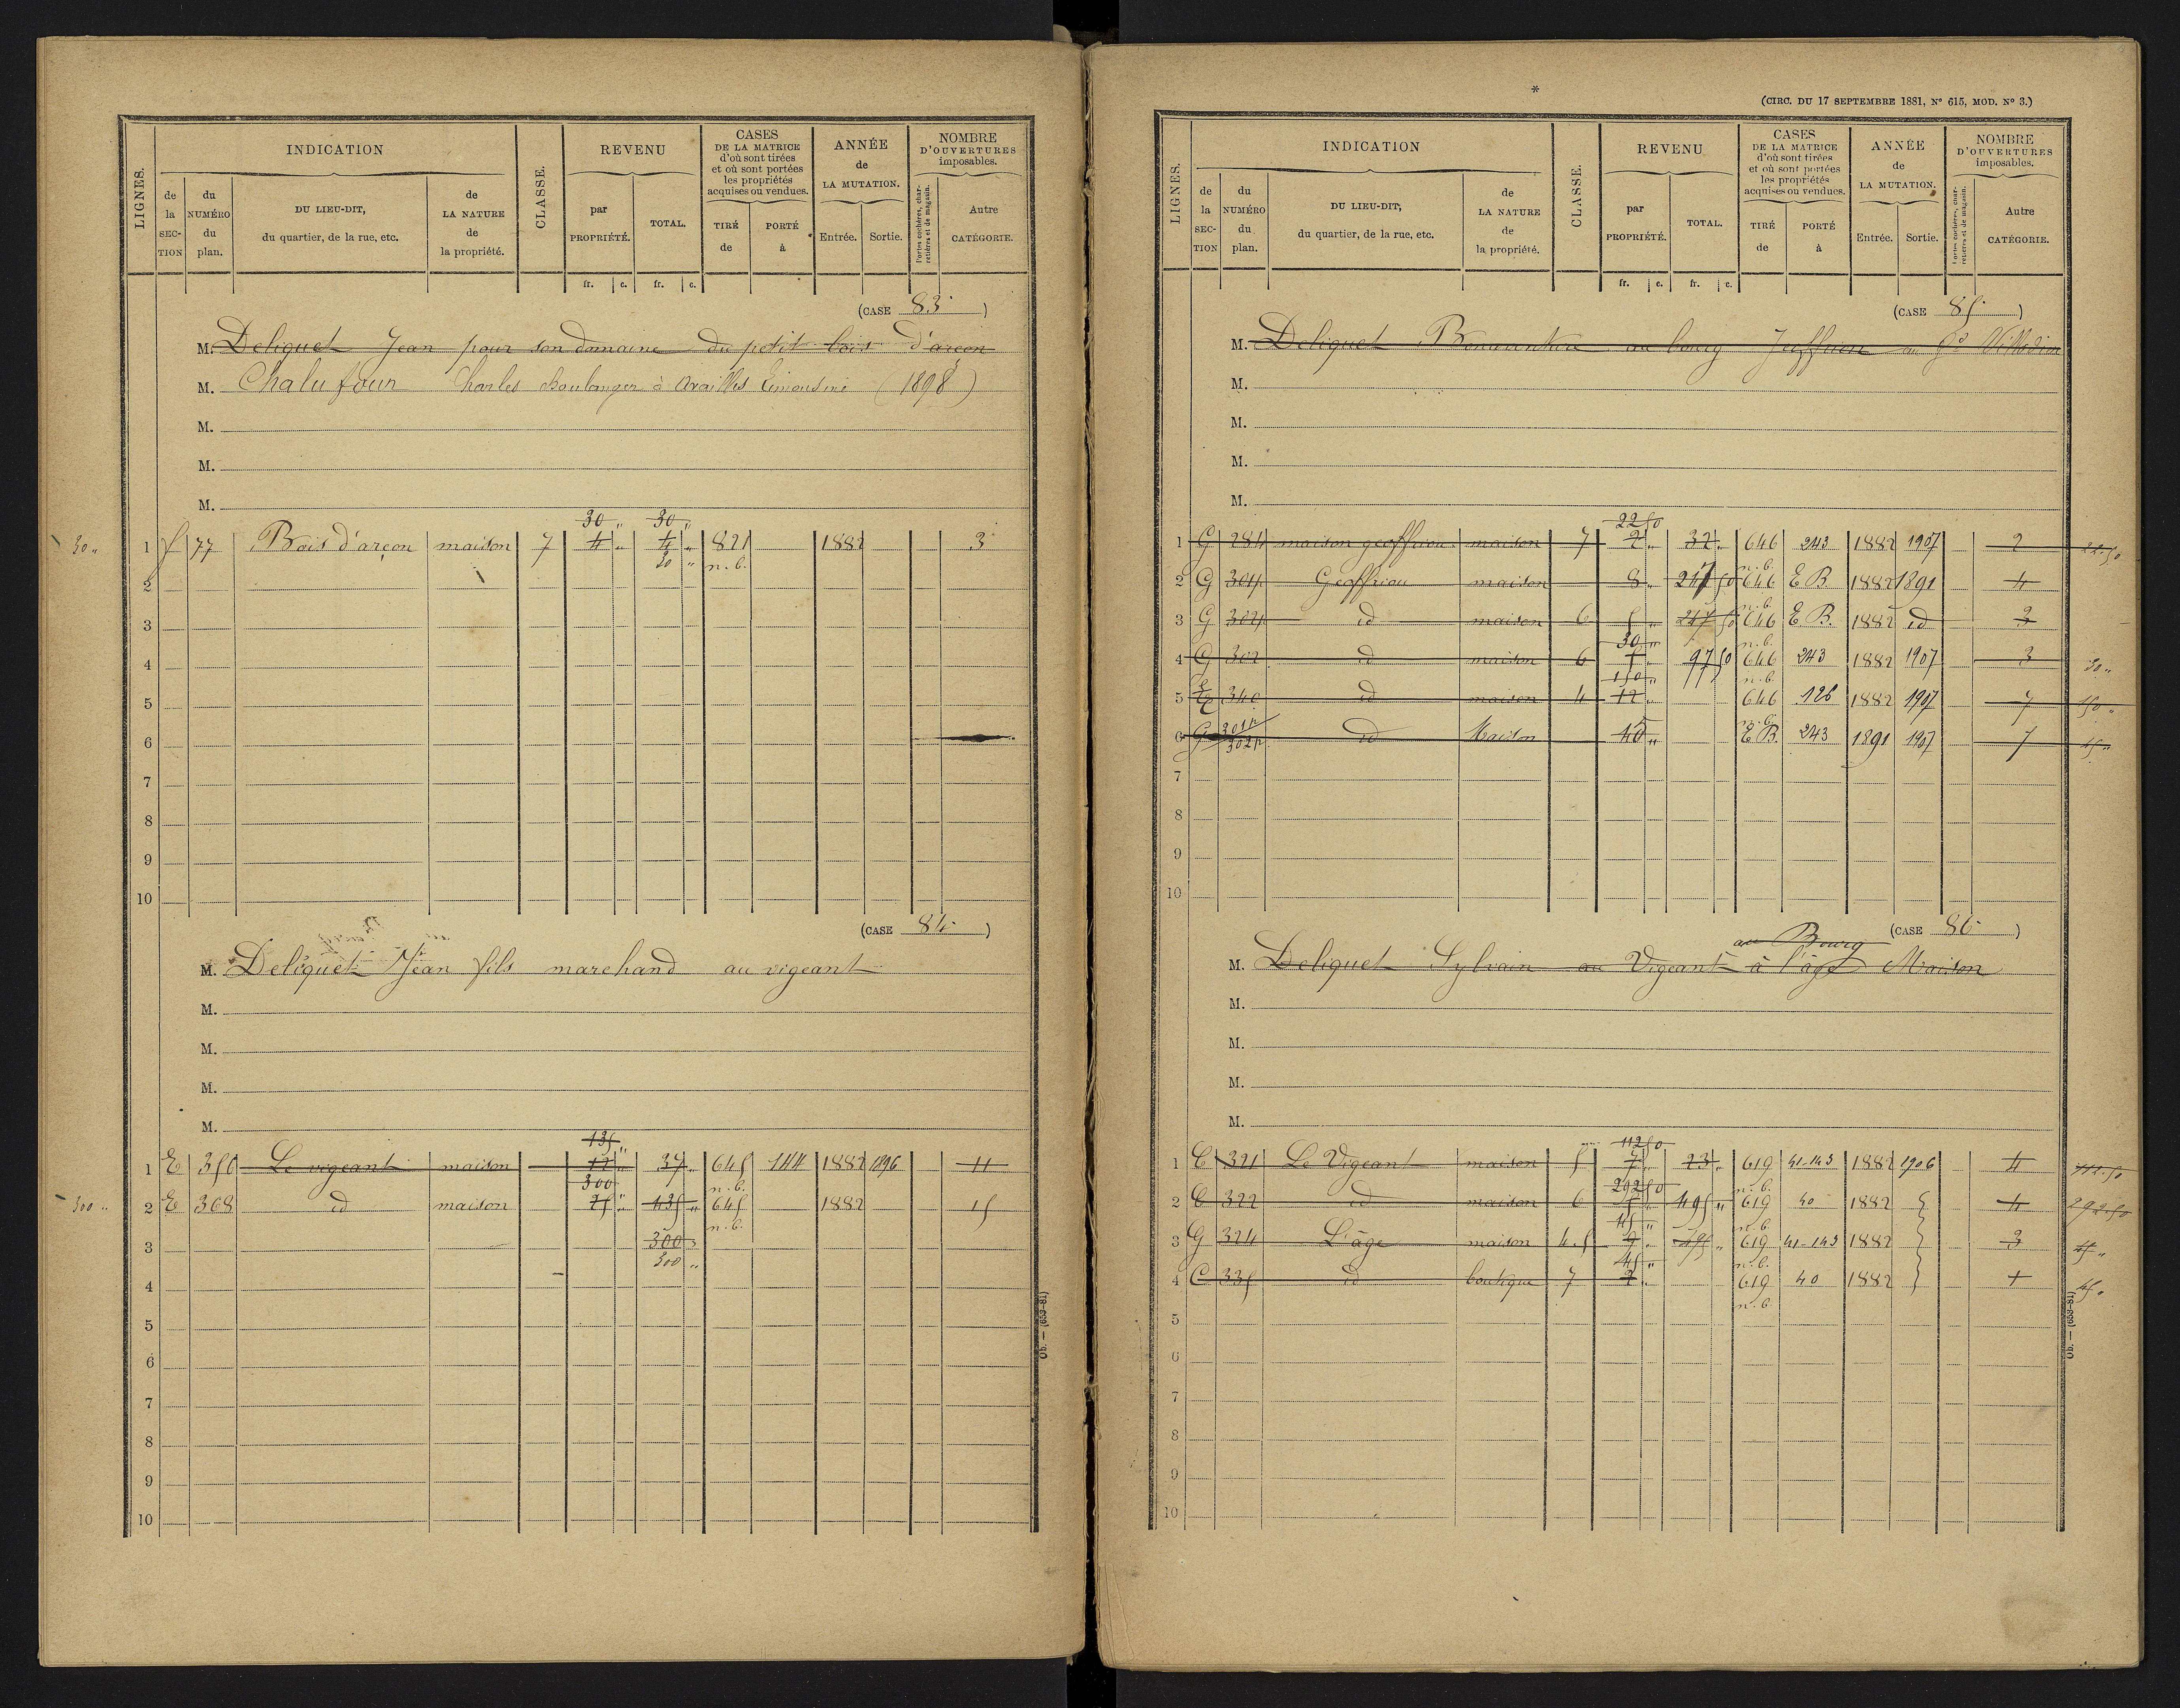 LIGNES.
INDICATION
de la SECTION
du NUMÉRO du plan.
DU LIEU-DIT, du quartier, de la rue, etc.
de LA NATURE de la propriété.
CLASSE.
REVENU
par PROPRIÉTÉ.
TOTAL.
CASES DE LA MATRICE d'où sont tirées et où sont portées les propriétés acquises ou vendues.
TIRÉ de
PORTÉ à
ANNÉE de LA MUTATION.
Entrée.
Sortie.
NOMBRE D'OUVERTURES imposables.
Portes cochères, charretières et de magasin.
Autre CATÉGORIE.
fr. c. fr. c.
(CASE 83)
M. Deliquet Jean pour son domaine du petit bois d'arçon
M. Chalufour Charles Boulanger à Availles Limousine (1898)
M.
M.
M.
30 " 30 "
30 " 1 F 77 Bois d'arçon maison 7 4 " 4 " 821 1882 3
30 " n.b.
2
3
4
5
6
7
8
9
10
(CASE 84)
M. Deliquet Jean fils marchand au vigeant
M.
M.
M.
M.
135 "
1 E 356 Le vigeant maison 12 " 37 " 645 144 1882 1896 11
300 n.b.
300 " 2 E 368 id maison 25 " 435 " 645 1882 15
n.b.
3 300 "
300 "
4
5
6
7
8
9
10
Ob. — (653-81)
*
(CIRC. DU 17 SEPTEMBRE 1881, N° 615, MOD. N° 3.)
LIGNES.
INDICATION
de la SECTION
du NUMÉRO du plan.
DU LIEU-DIT, du quartier, de la rue, etc.
de LA NATURE de la propriété.
CLASSE.
REVENU
par PROPRIÉTÉ.
TOTAL.
CASES DE LA MATRICE d'où sont tirées et où sont portées les propriétés acquises ou vendues.
TIRÉ de
PORTÉ à
ANNÉE de LA MUTATION.
Entrée.
Sortie.
NOMBRE D'OUVERTURES imposables.
Portes cochères, charretières et de magasin.
Autre CATÉGORIE.
fr. c. fr. c.
(CASE 85)
M. Deliquet Bonaventure au bourg Jeoffrion au
M.
M.
M.
M.
22 50
1 G 284 maison geoffrion maison 7 2 " 32 " 646 243 1882 1907 2 22.50
n.b.
2 G 301p Geoffriou maison 8 " 247 50 646 E B. 1882 1891 4
n.b.
3 G 302p id maison 6 5 " 247 50 646 E B. 1882 id 3
30 " n.b.
4 G 302 id maison 6 97 50 646 243 1882 1907 3 30 "
150 " n.b.
5 E 340 id maison 4 12 " 646 126 1882 1907 7 150 "
n.b.
6 G 301p 302p id Maison 45 " E B. 243 1891 1907 7 45 "
7
8
9
10
(CASE 86)
au Bourg
M. Deliquet Sylvain au Vigeant à l'âge Maison
M.
M.
M.
M.
112 50
1 C 321 Le Vigeant maison 5 7 " 23 " 619 41-143 1882 1906 4 112.50
292 50 n.b.
2 C 322 id maison 6 5 " 495 " 619 40 1882 4 292.50
45 " n.b.
3 G 324 L'âge maison 4.5 9 " 495 " 619 41-143 1882 3 45 "
45 " n.b.
4 C 335 id boutique 7 2 " 619 40 1882 1 45 "
n.b.
5
6
7
8
9
10
Ob. — (653-81)